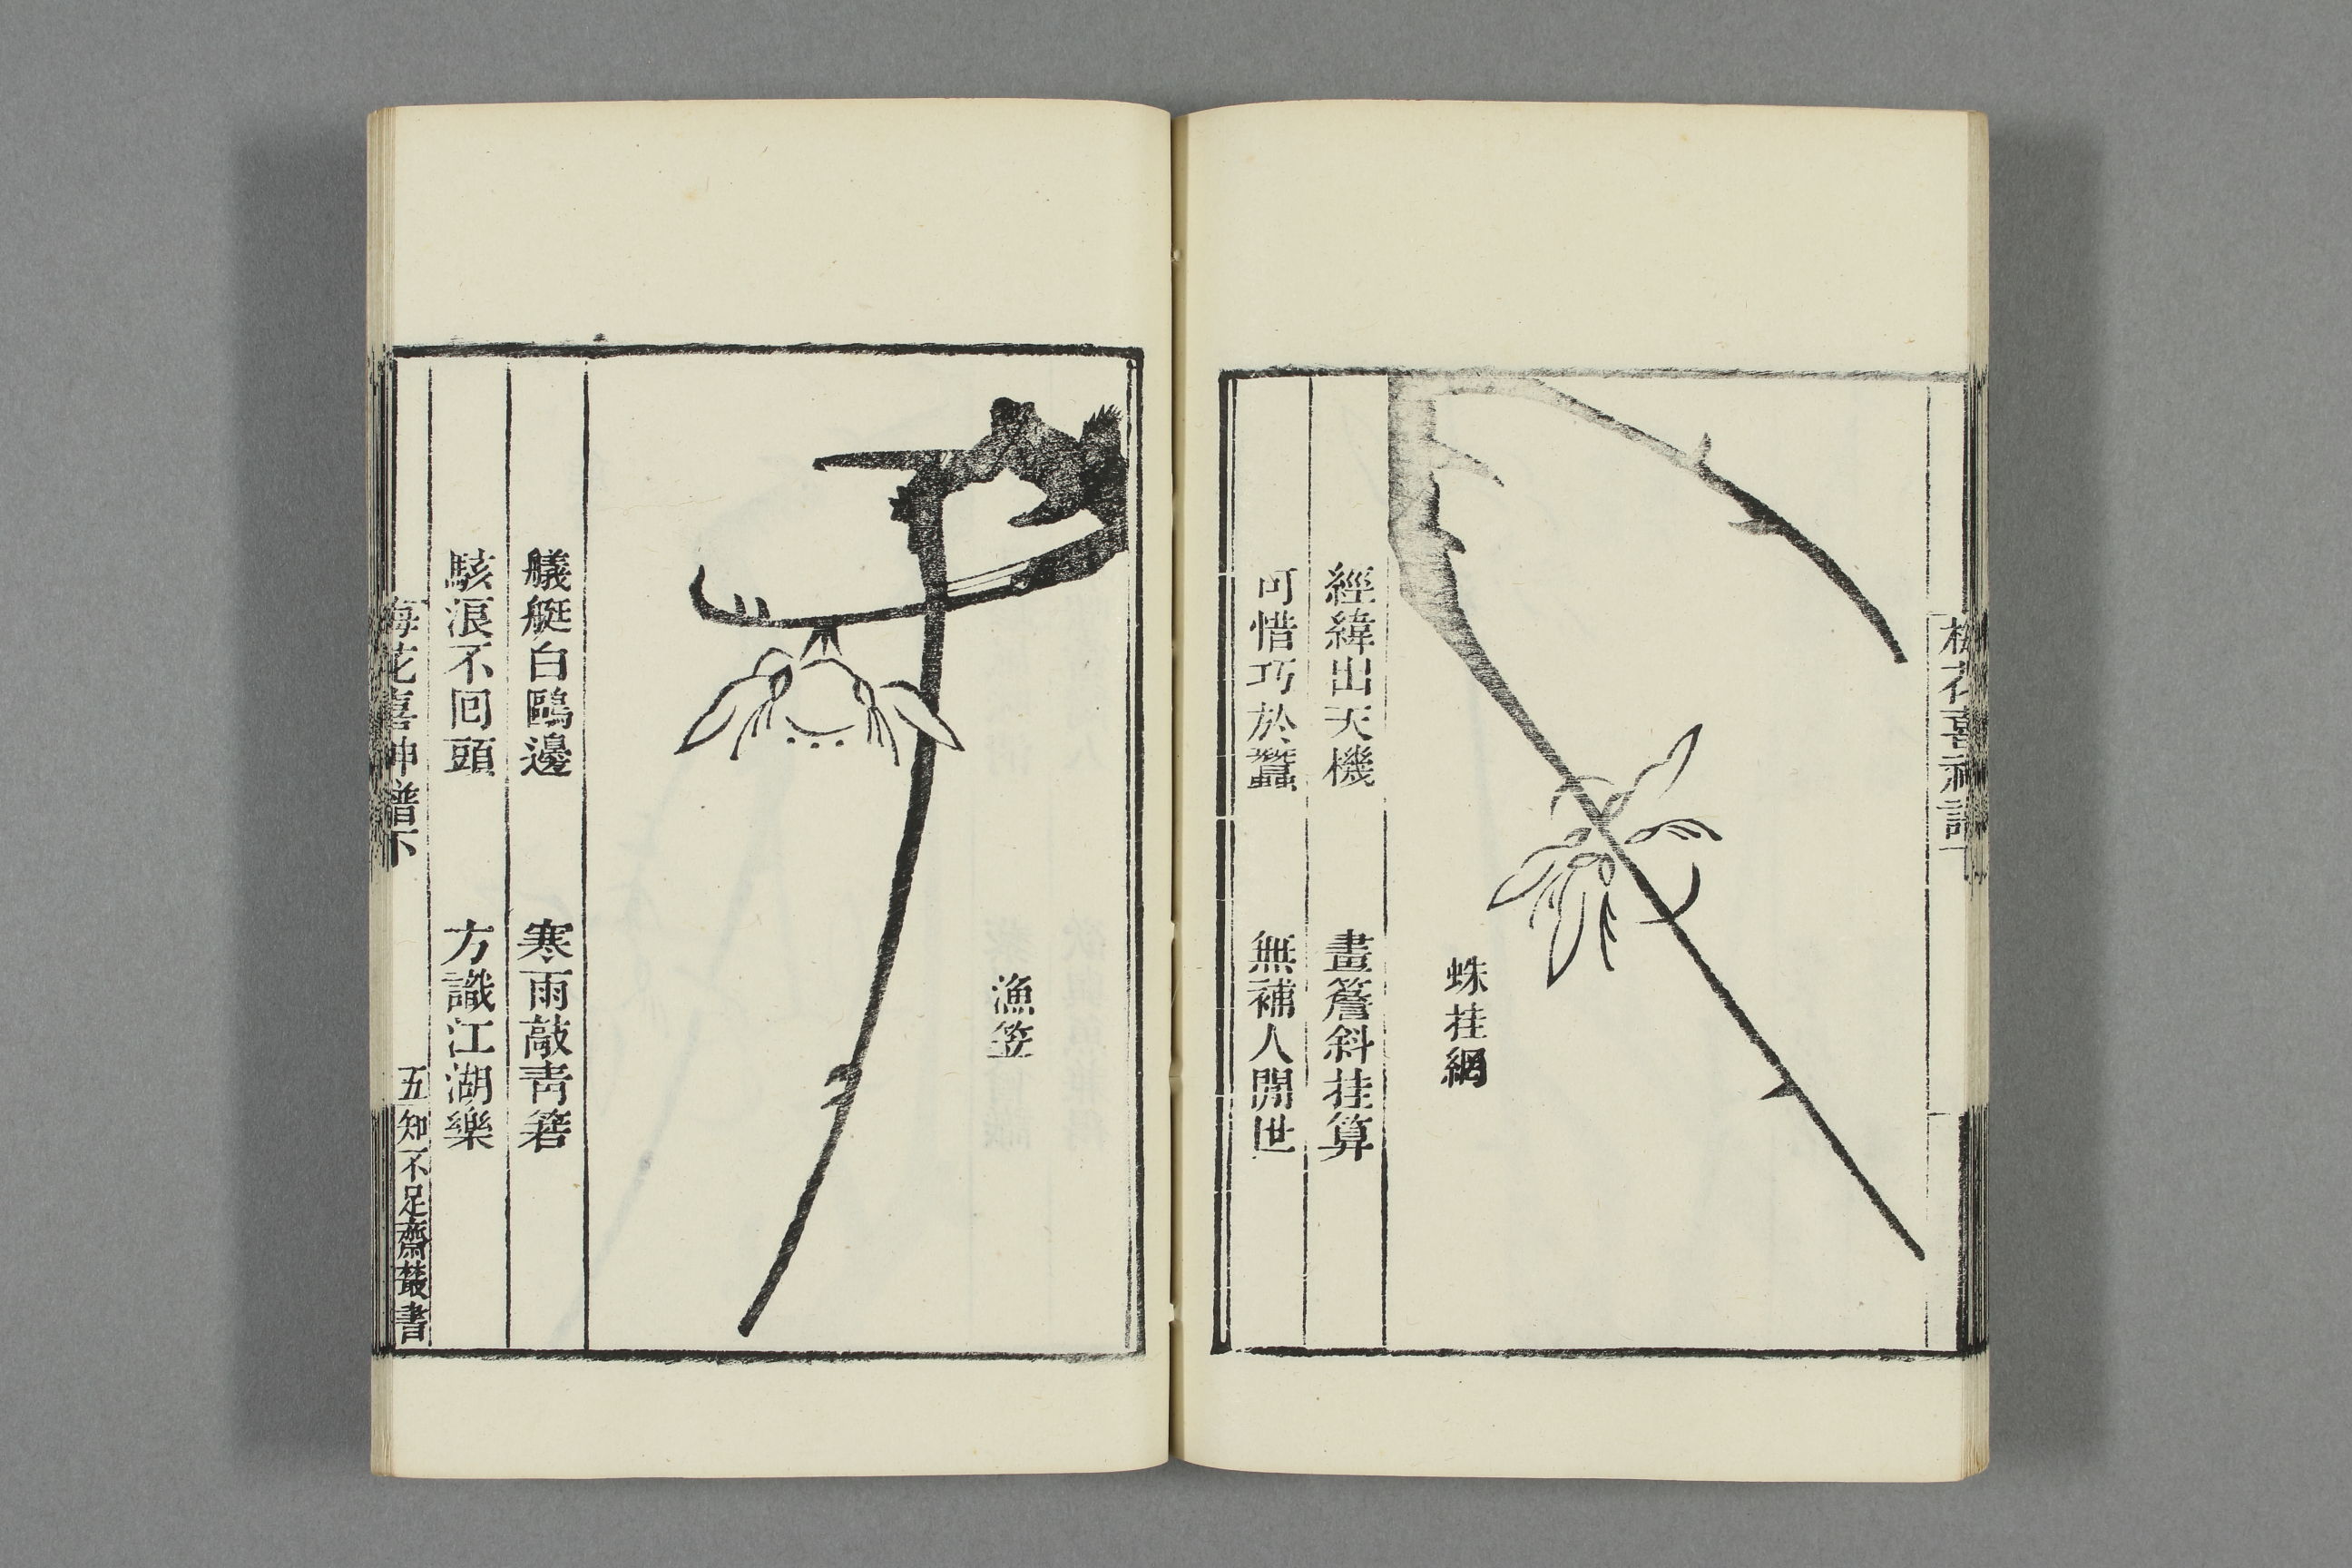 梅花喜神譜下
蛛挂網
經緯出天機　畫簷斜挂算
可惜巧於蠶　無補人閒世
漁笠
艤艇白鷗邊　寒雨敲青箬
駭浪不回頭　方識江湖樂
梅花喜神譜下
五
知不足齋叢書